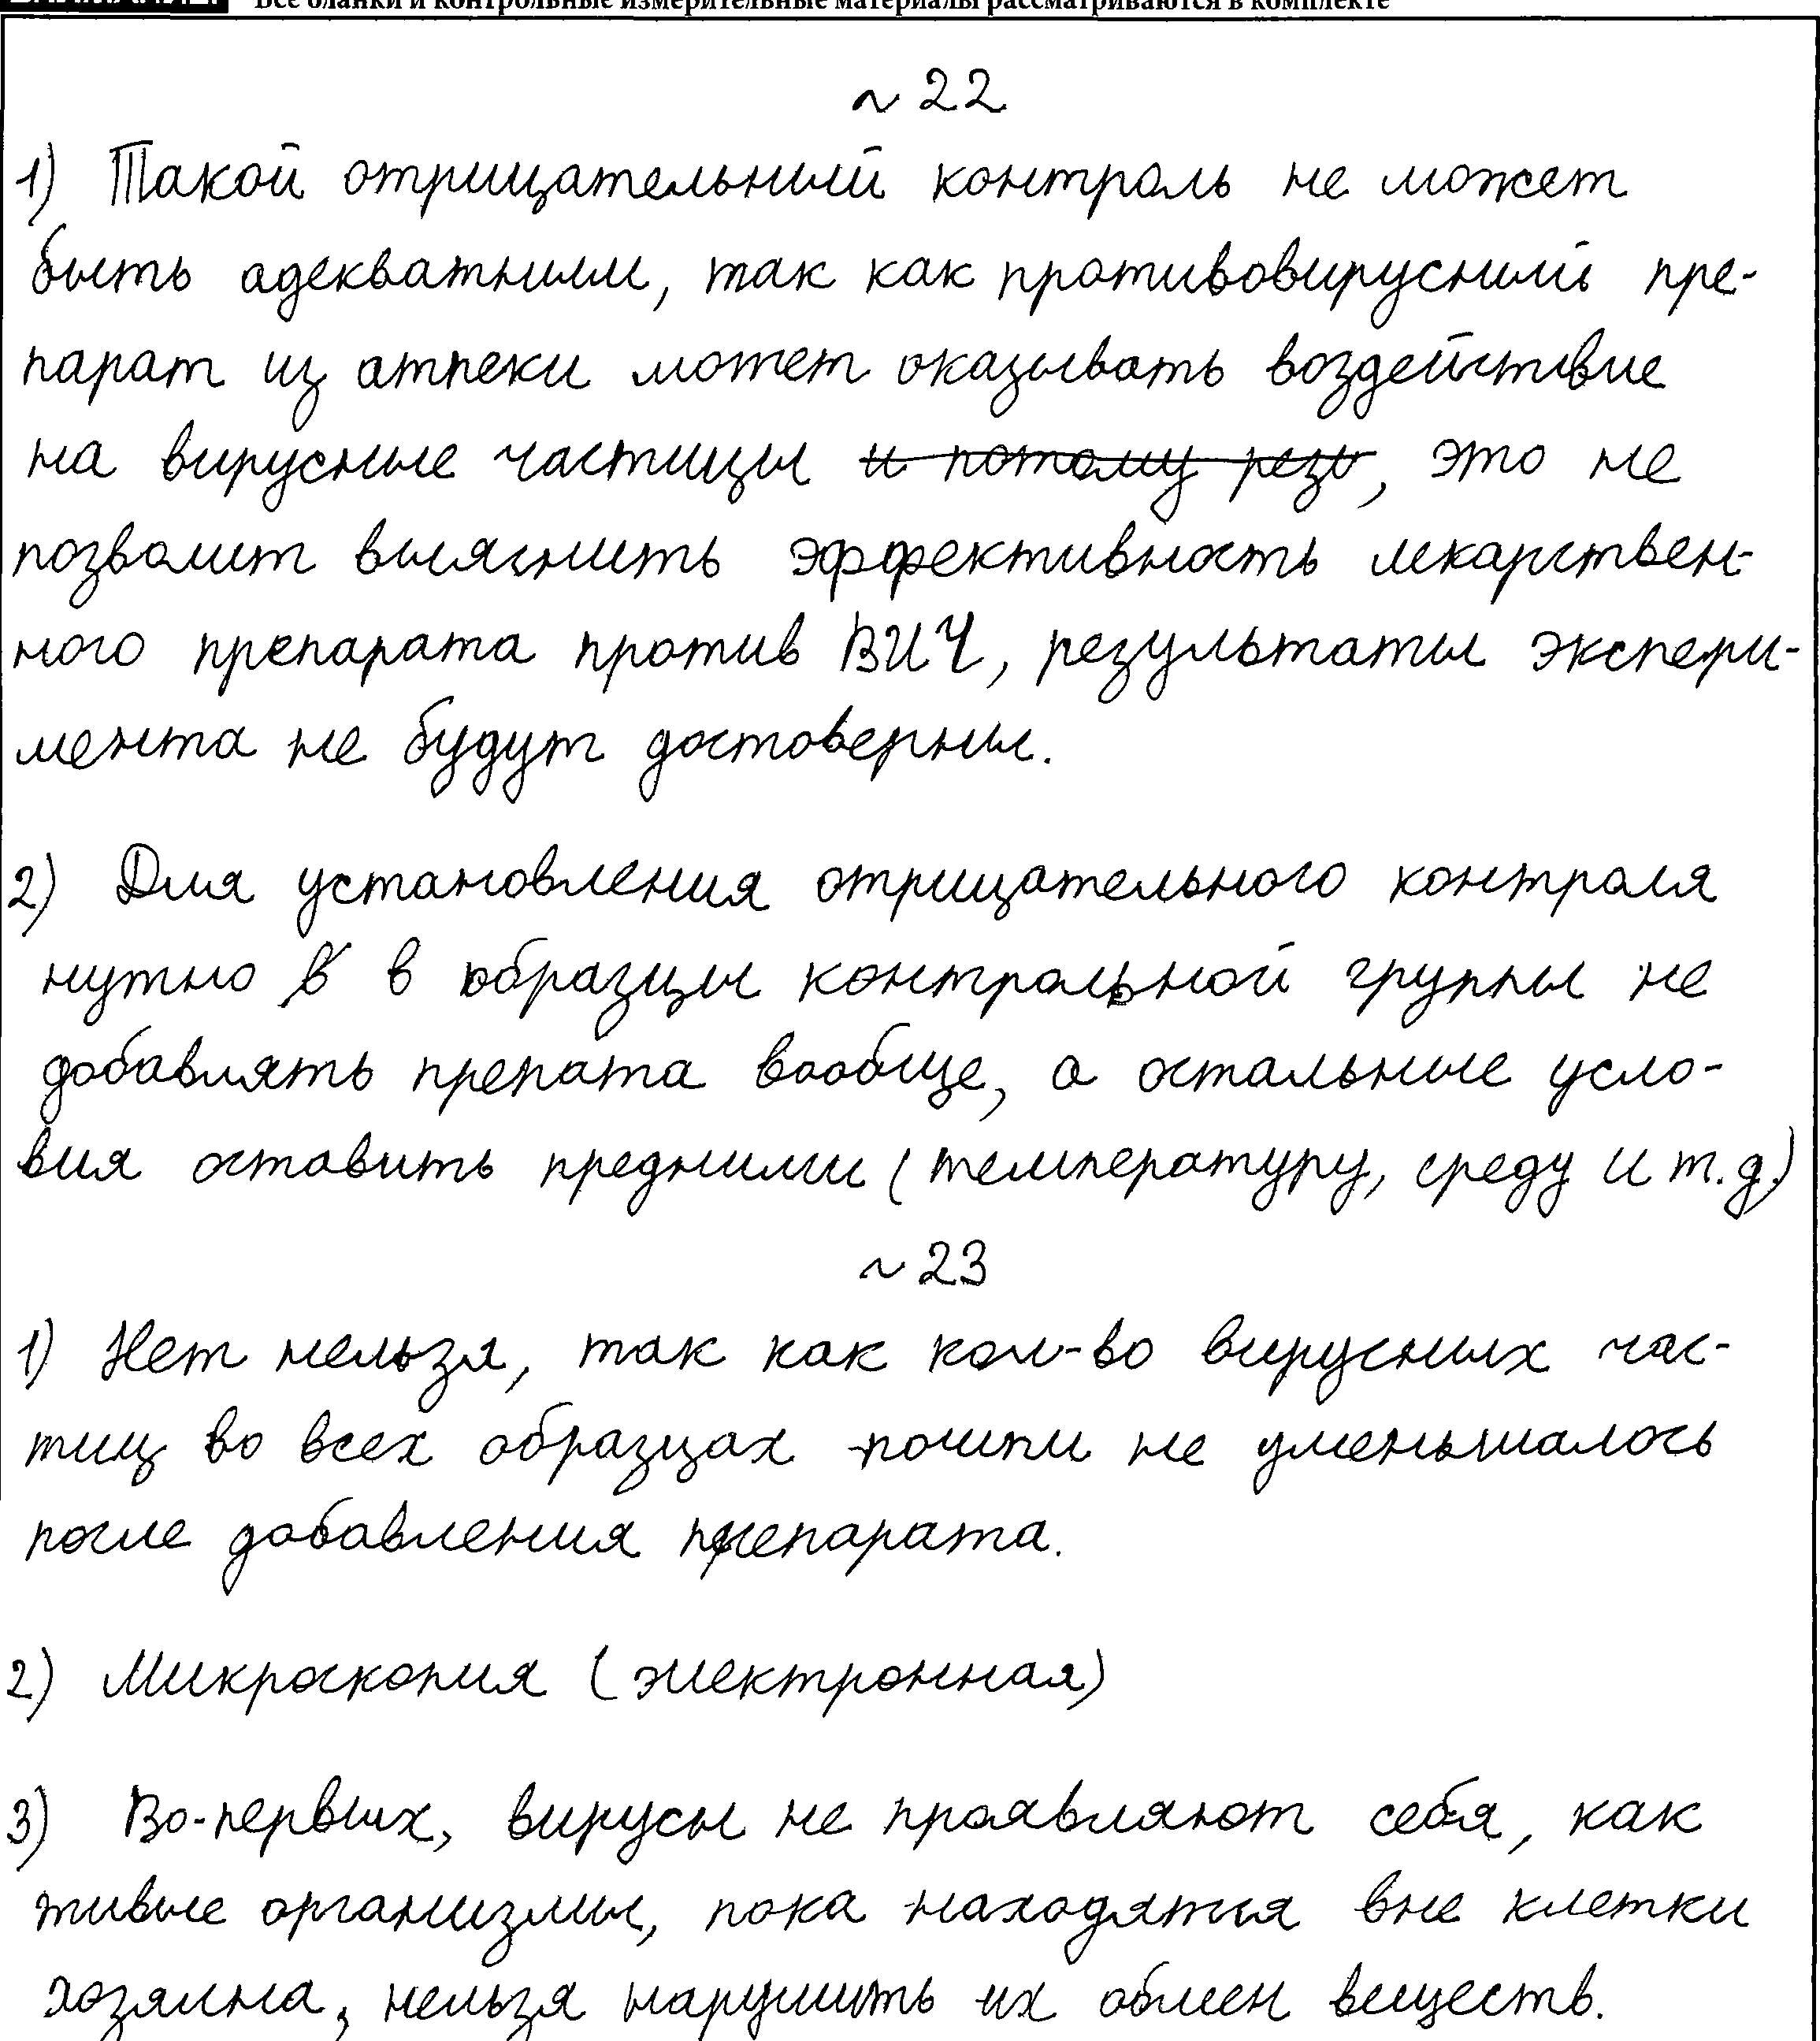 Все бланки и контрольные измерительные материалы рассматриваются в комплекте
~ 22
1) Такой отрицательный контроль не может
быть адекватным, так как противовирусный пре-
парат из атпеки может оказывать воздействие
на вирусные частицы и потому рез, это не
позволит выяснить эффективность лекарствен-
ного препарата против ВИЧ, результаты экспери-
мента не будут достоверны.
2) Для установления отрицательного контроля
нужно в в образцы контрольной группы не
добавлять препата вообще, а остальные усло-
вия оставить предними (температуру, среду и т.д.)
~ 23
1) Нет нельзя, так как кол-во вирусных час-
тиц во всех образцах почти не уменьшалось
после добавления препарата.
2) Микроскопия (электронная)
3) Во-первых, вирусы не проявляют себя, как
живые организмы, пока находятся вне клетки
хозяина, нельзя нарушить их обмен веществ.